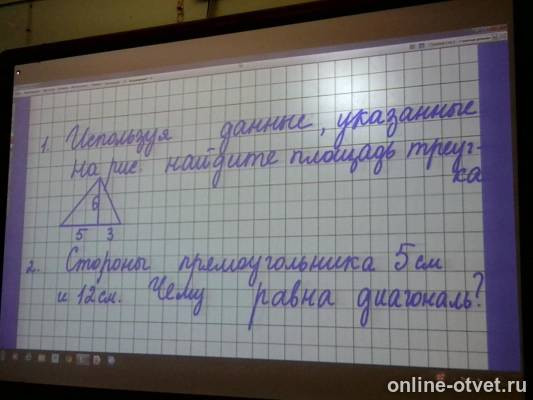 1. Используя данные, указанные
на рис. найдите площадь треуг-
ка
6
5 3
2. Стороны прямоугольника 5 см
и 12 см. Чему равна диагональ?
online-otvet.ru